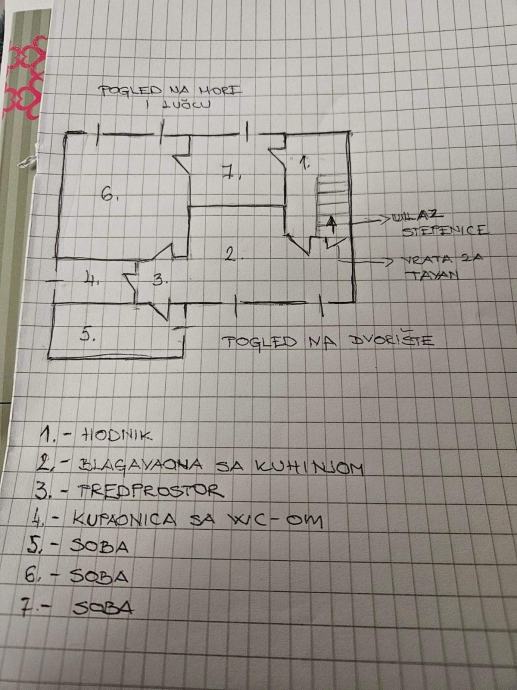 POGLED NA MORE
I LUČCU
6.
7.
1.
2.
4.
3.
5.
ULAZ
STEPENICE
VRATA ZA
TAVAN
POGLED NA DVORIŠTE
1. - HODNIK
2. - BLAGAVAONA SA KUHINJOM
3. - PREDPROSTOR
4. - KUPAONICA SA WC-OM
5. - SOBA
6. - SOBA
7. - SOBA